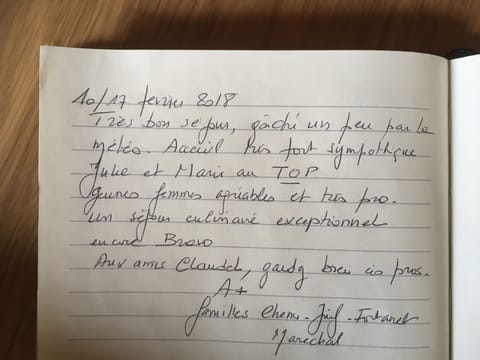 10/17 fevrier 2018
Très bon séjour, gâché un peu par la
météo. Accueil très fort sympathique
Julie et Marie au TOP
jeunes femmes agréables et très pro.
un séjour culinaire exceptionnel
encore Bravo
Aux amis Claudel, gardez bien ces pros.
A+
familles - Fontanet
Marechal